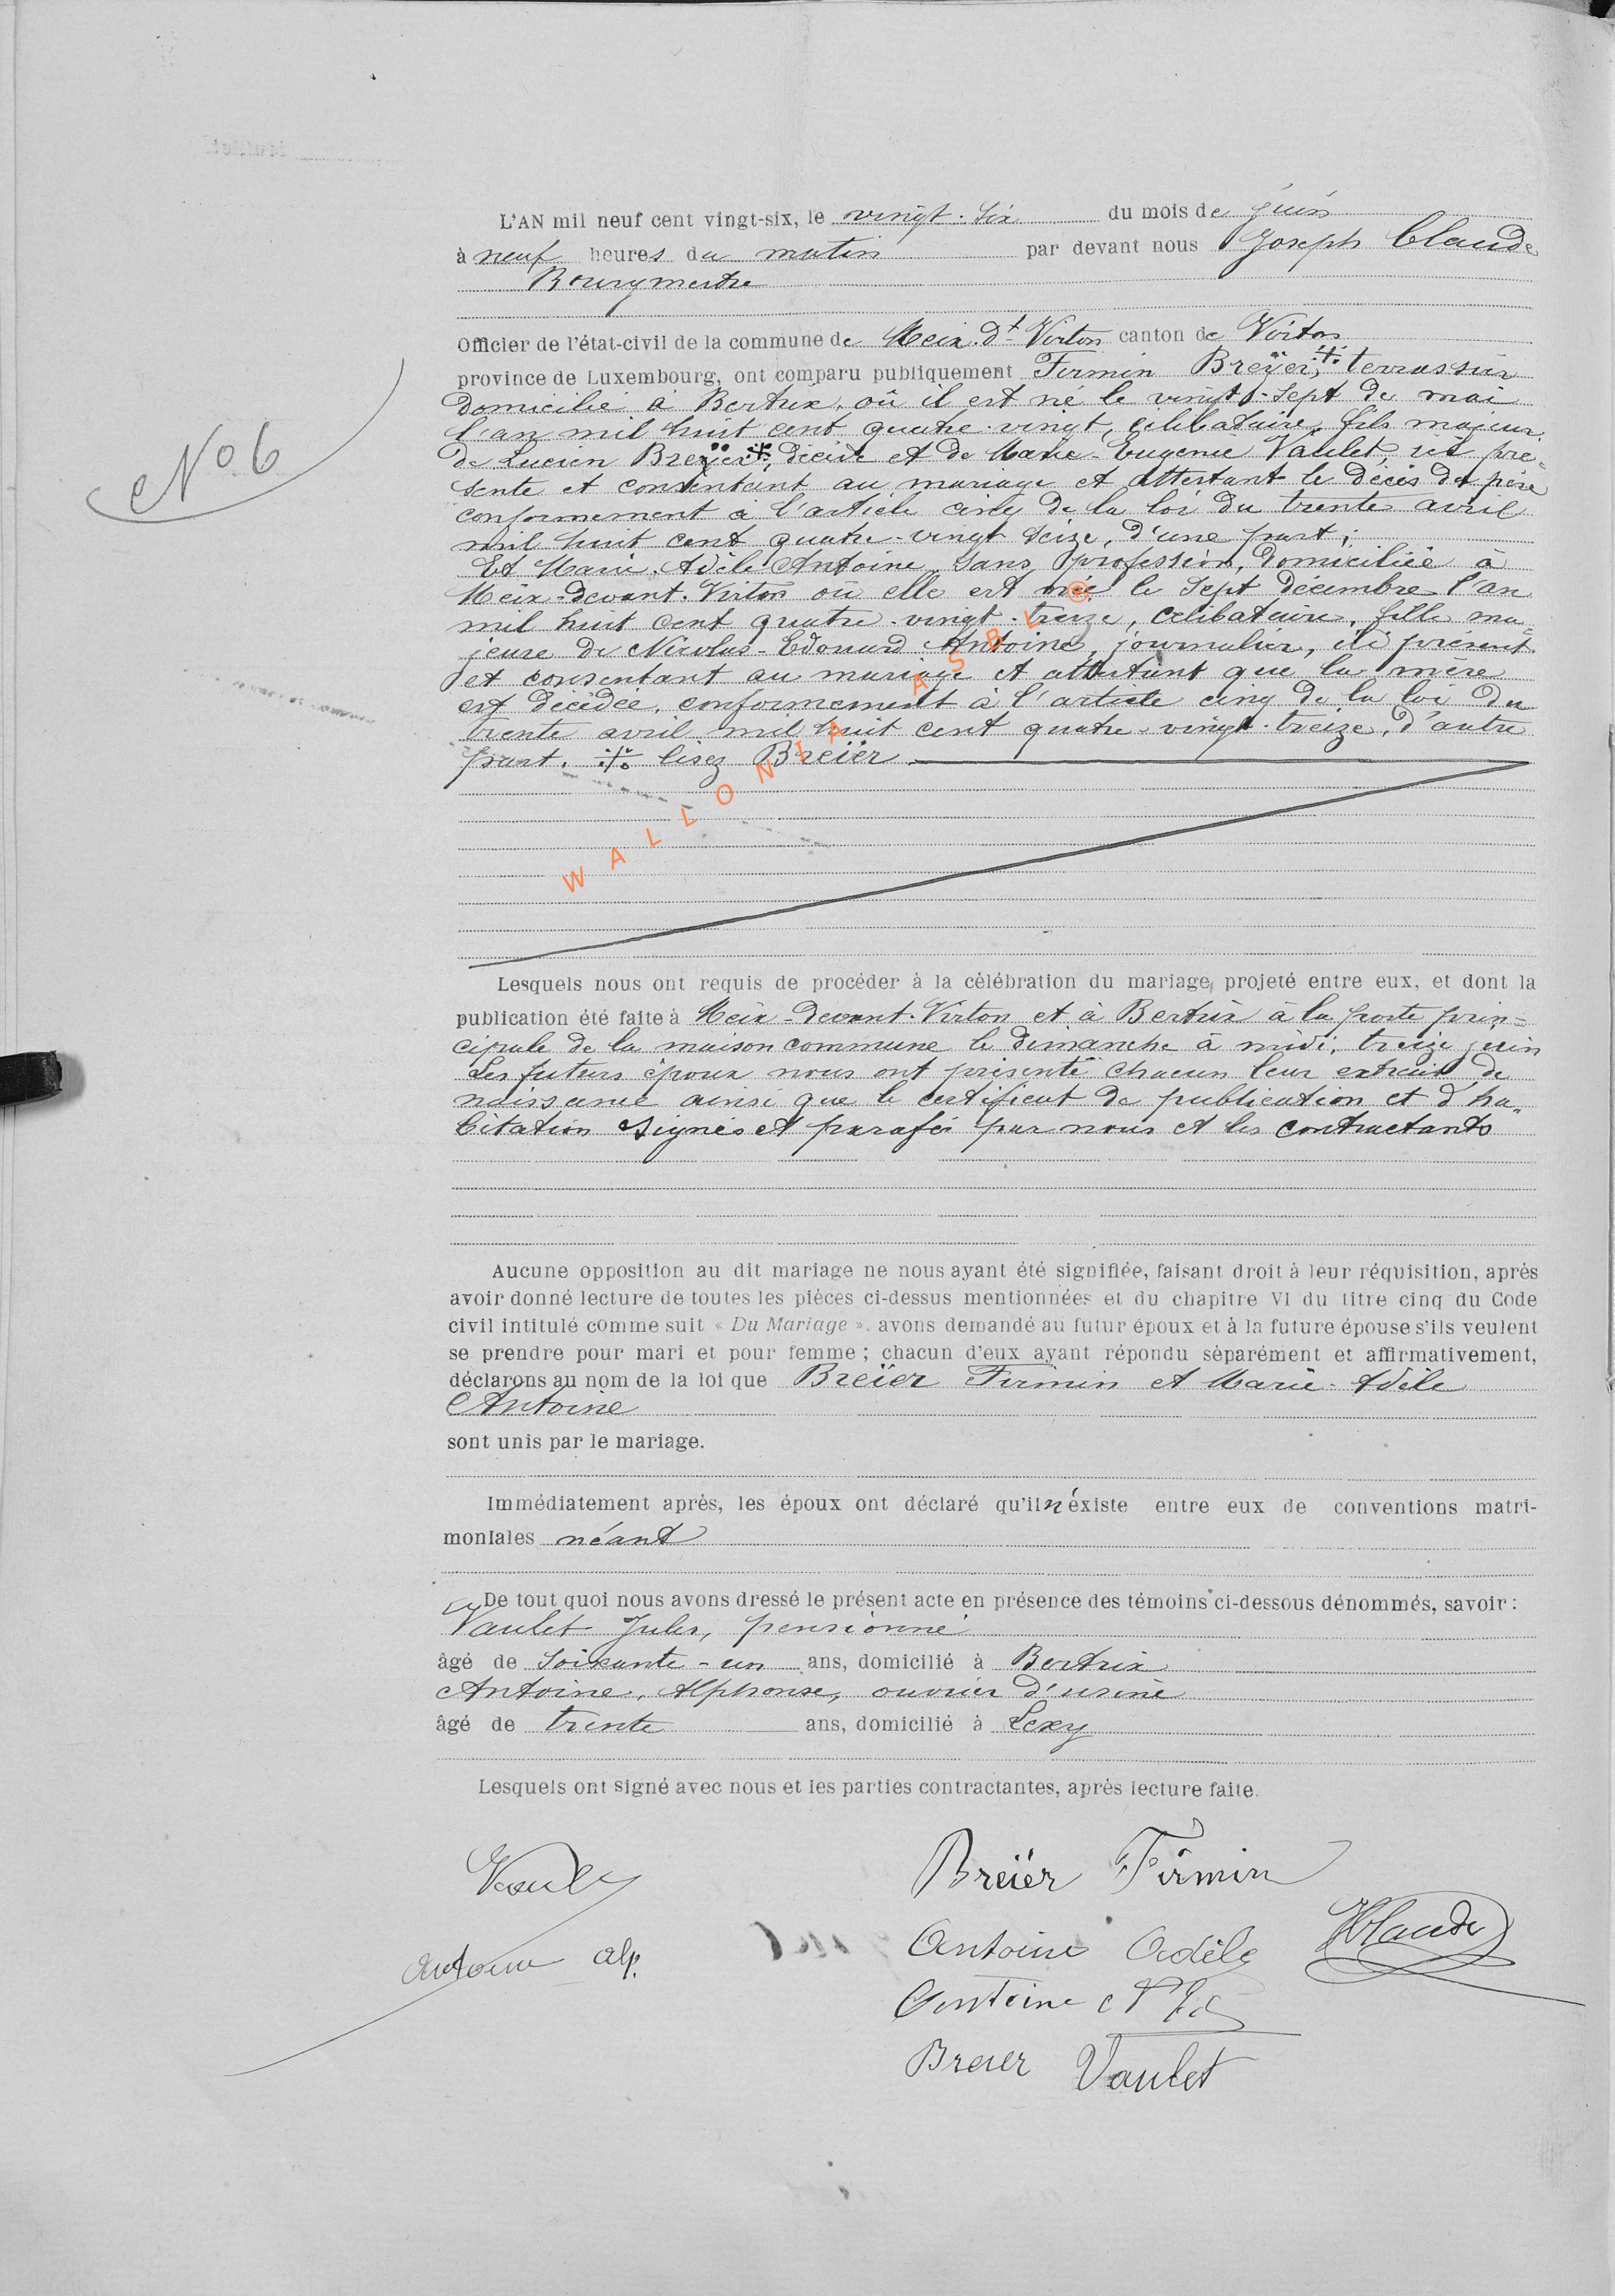 L'AN mil neuf cent vingt-six, le vingt-six du mois de juin
à neuf heures du matin par devant nous Joseph Claude
Bourgmestre
Officier de l'état-civil de la commune de Meix-dt-Virton canton de Virton
province de Luxembourg, ont comparu publiquement Firmin Breÿer, terrassier
domicilié à Bertrix, où il est né le vingt-sept de mai
l'an mil huit cent quatre-vingt, célibataire, fils majeur
de Lucien Breÿer, décédé et de Marie-Eugenie Vaulet, ici pré=
sente et consentant au mariage et attestant le décès du père
conformement a l'article cinq de la loi du trente avril
mil huit cent quatre-vingt seize, d'une part;
Et Marie-Adèle Antoine, sans profession, domiciliée à
Meix-devant-Virton où elle est née le sept décembre l'an
mil huit cent quatre-vingt-treize, célibataire, fille ma=
jeure de Nicolas-Edouard Antoine, journalier, ici présent
et consentant au mariage et attestant que la mère
est décédée, conformement à l'article cinq de la loi du
trente avril mil huit cent quatre-vingt-treize, d'autre
part. lisez Breïer
WALLONIA ASBL ®
N° 6
Lesquels nous ont requis de procéder à la célébration du mariage projeté entre eux, et dont la
publication été faite à Meix-devant-Virton et à Bertrix à la porte prin=
cipale de la maison commune le dimanche à midi, treize juin
Les futurs époux nous ont présenté chacun leur extrait de
naissance ainsi que le certificat de publication et d'ha=
bitation signés et parafés par nous et les contractants
Aucune opposition au dit mariage ne nous ayant été signifiée, faisant droit à leur réquisition, après
avoir donné lecture de toutes les pièces ci-dessus mentionnées et du chapitre VI du titre cinq du Code
civil intitulé comme suit « Du Mariage ». avons demandé au futur époux et à la future épouse s'ils veulent
se prendre pour mari et pour femme ; chacun d'eux ayant répondu séparément et affirmativement,
déclarons au nom de la loi que Breïer Firmin et Marie-Adèle
Antoine
sont unis par le mariage.
Immédiatement après, les époux ont déclaré qu'il n'éxiste entre eux de conventions matri-
moniales néant
De tout quoi nous avons dressé le présent acte en présence des témoins ci-dessous dénommés, savoir :
Vaulet Jules, pensionné
âgé de soixante-un ans, domicilié à Bertrix
Antoine, Alphonse, ouvrier d'usine
âgé de trente ans, domicilié à Lexy
Lesquels ont signé avec nous et les parties contractantes, après lecture faite.
Breïer Firmin
Antoine Alp.
Antoine Adèle
JClaude
Antoine
Breier Vaulet